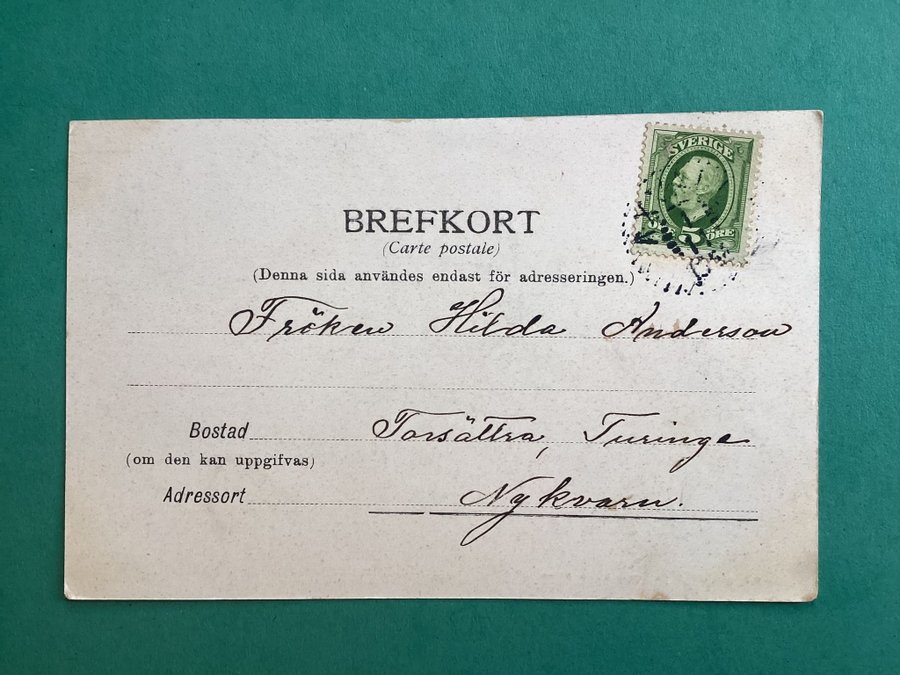 SVERIGE
5 ÖRE
BREFKORT
(Carte postale)
(Denna sida användes endast för adresseringen.)
Fröken Hilda Anderson
Bostad Torsättra, Turinge
(om den kan uppgifvas)
Adressort Nykvarn.